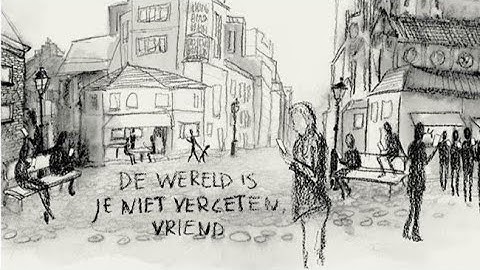 DE WERELD IS
JE NIET VERGETEN,
VRIEND